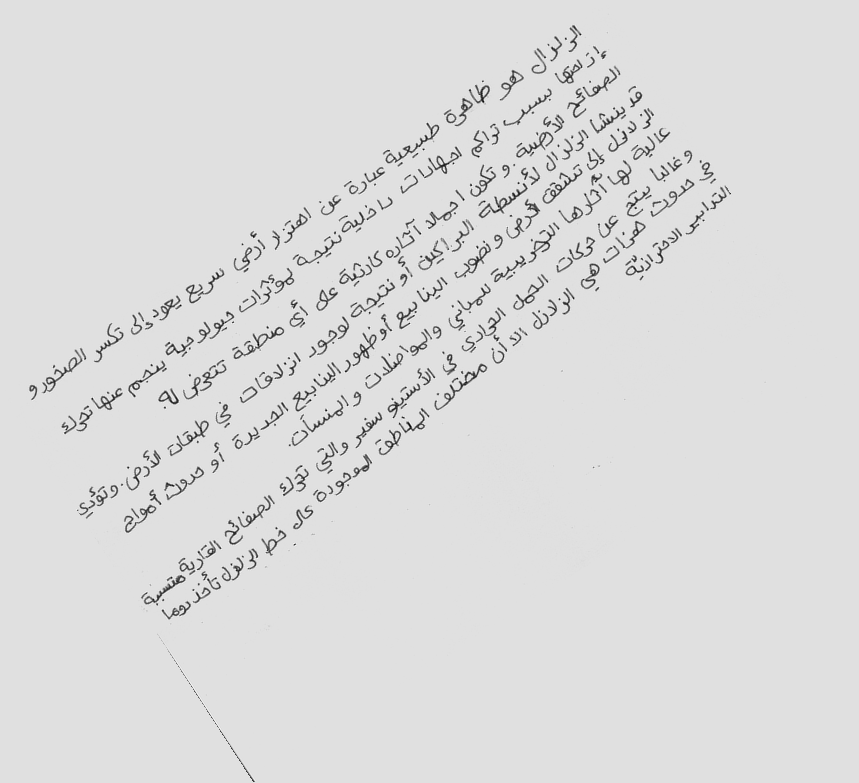 الزلزال هو ظاهرة طبيعية عبارة عن اهتزاز أرضي سريع يعود إلى تكسر الصخور و
إزاحتها بسبب تراكم اجهادات داخلية نتيجة لمؤثرات جيولوجية ينجم عنها تحرك
الصفائح الأرضية . و تكون اجمالا آثاره كارثية على أي منطقة تتعرض له.
قد ينشا الزلزال لأنسطة البراكين أو نتيجة لوجود انزلاقات في طبقات الأرض . وتؤدي
الزلازل إلى تشقق الأرض و نضوب الينابيع أو ظهور الينابيع الجديدة أو حدوث أمواج
عالية لها آثارها التخريبية للمباني والمواصلات و المنسآت.
و غالبا ينتج عن حركات الحمل الحراري في الأستينوسفير والتي تحرك الصفائح القارية متسببة
في حدوث هزات هي الزلازل الا أن مختلف المناطق الموجودة على خط الزلازل تأخذ دوما
التدابير الاحترازية